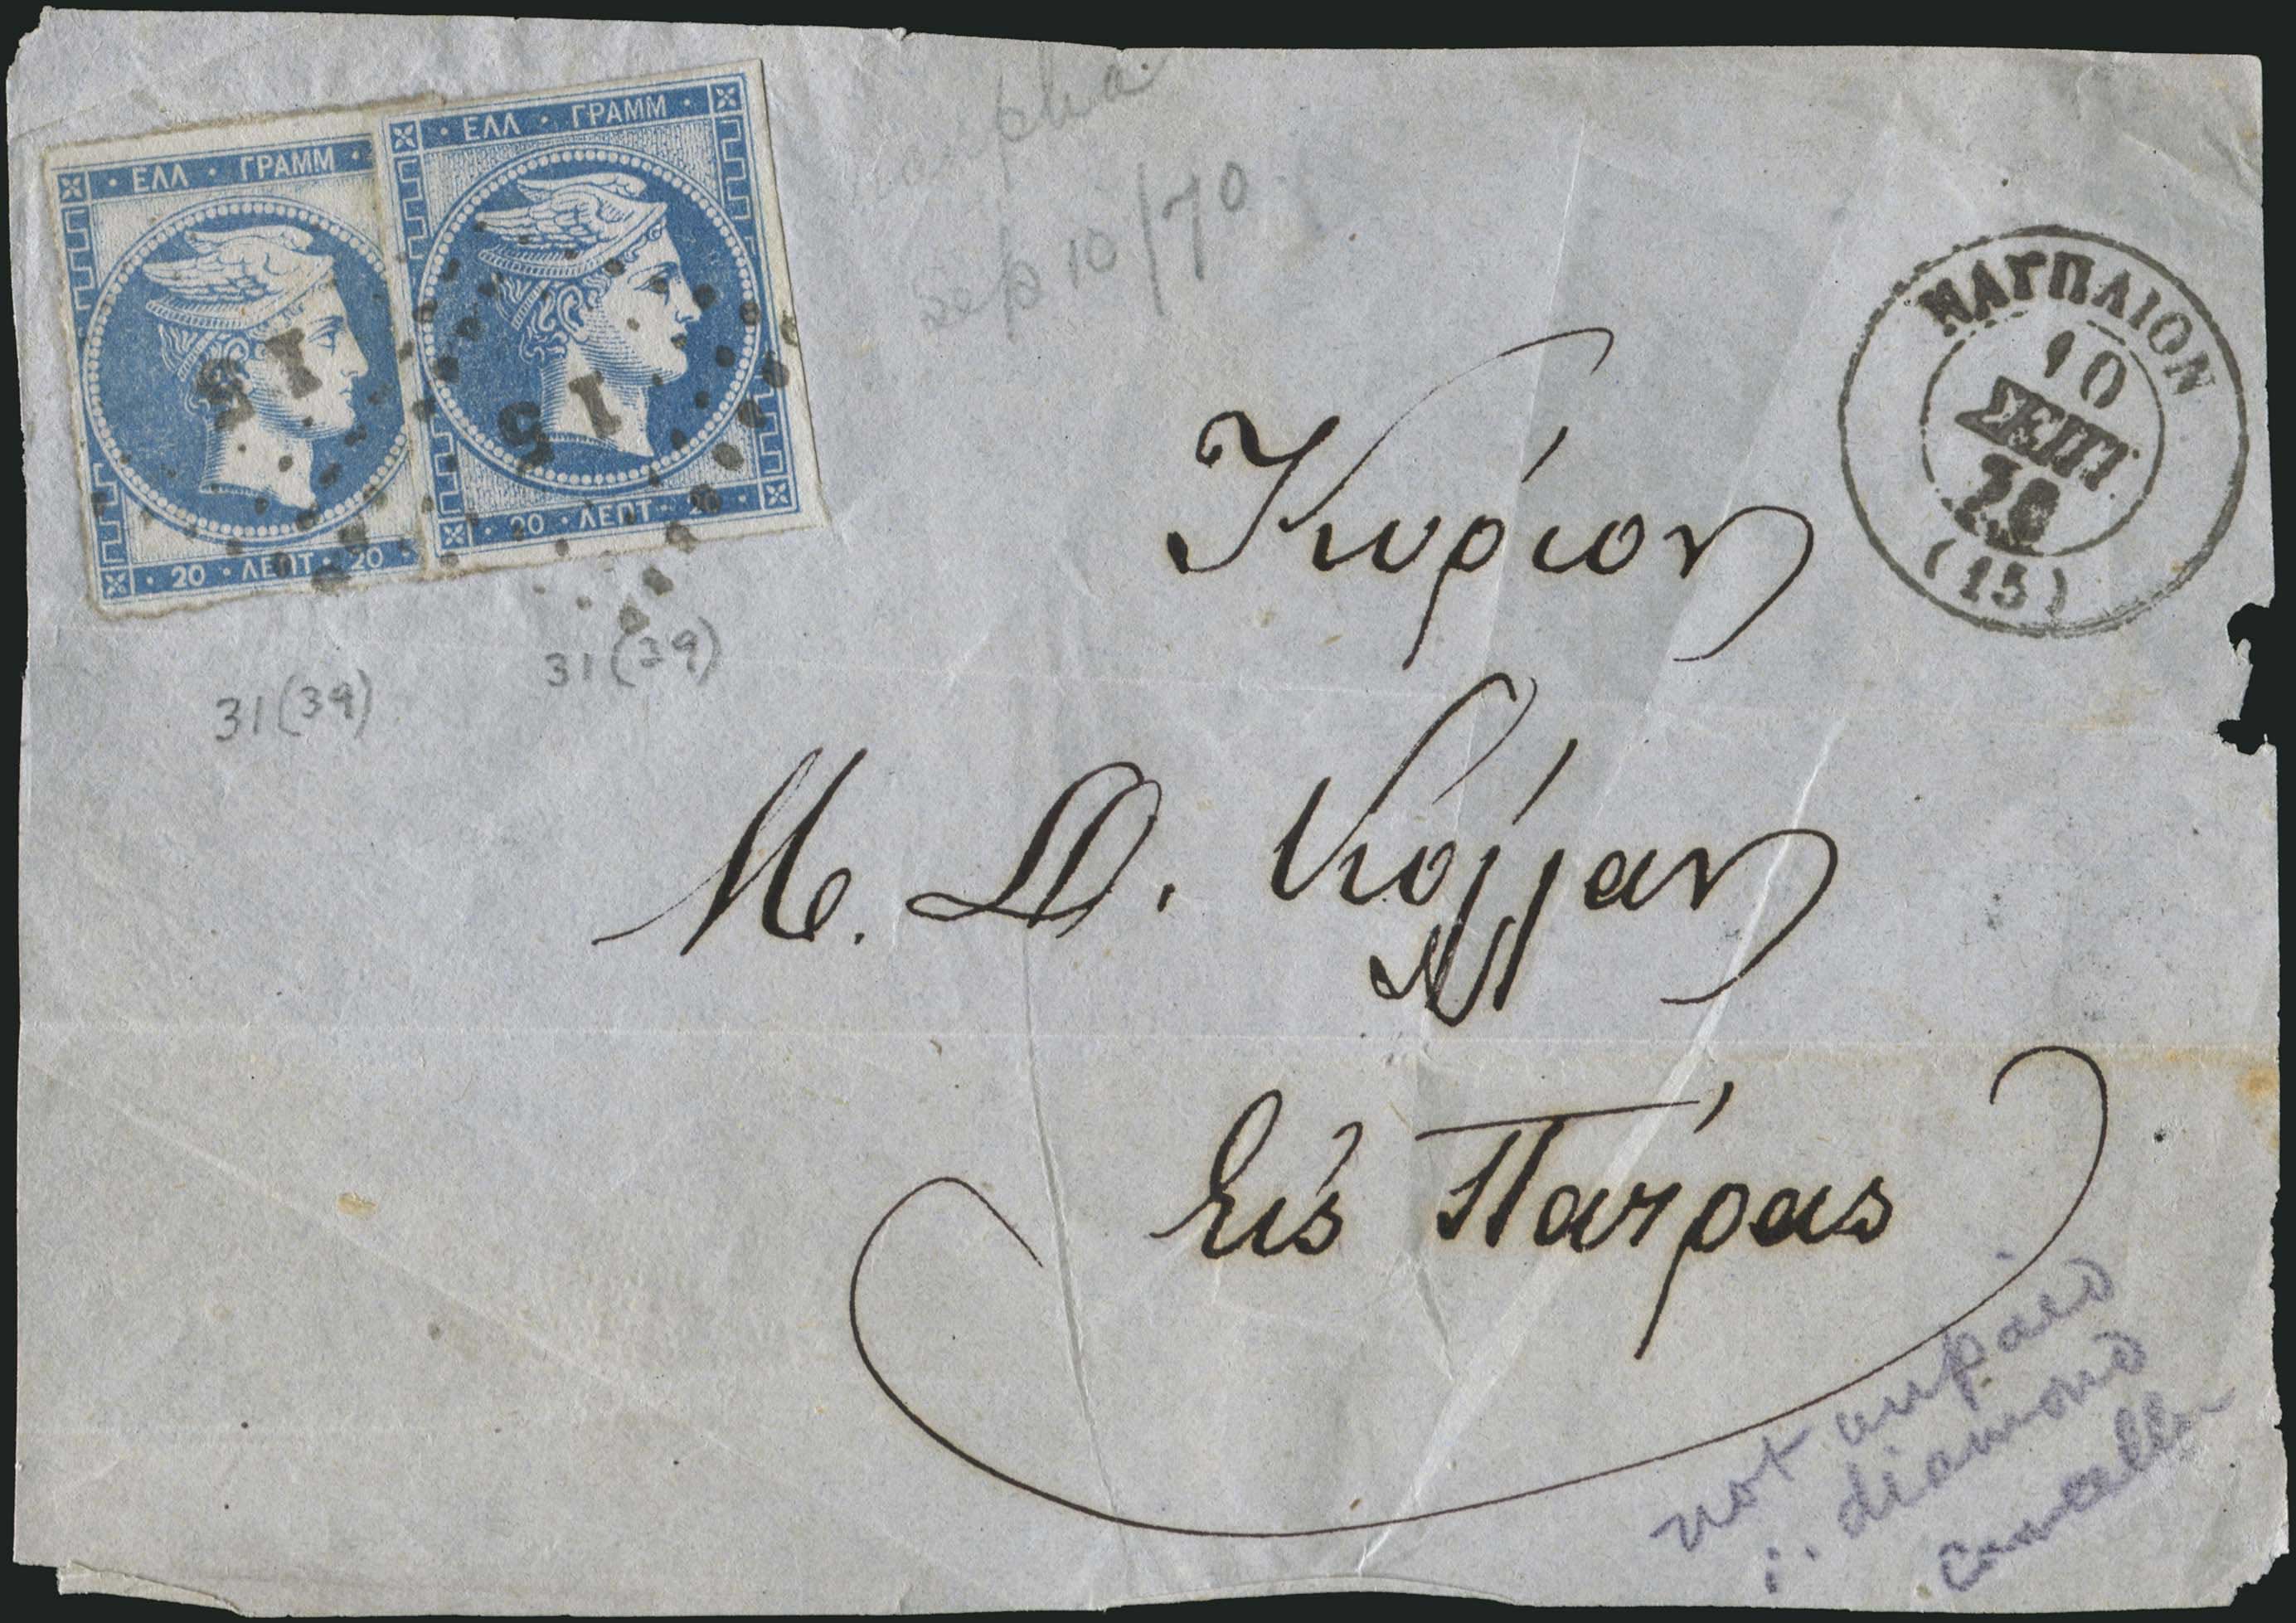 · ΕΛΛ · ΓΡΑΜΜ ·
· 20 · ΛΕΠΤ · 20
· ΕΛΛ · ΓΡΑΜΜ ·
· 20 · ΛΕΠΤ · 20 ·
15
15
31(39)
31(39)
Sep 10/70
ΝΑΥΠΛΙΟΝ
10
ΣΕΠΤ
(15)
Κυρίον
Μ. Δ.
Εἰς Πάτρας
not unpaid
∴ diamond